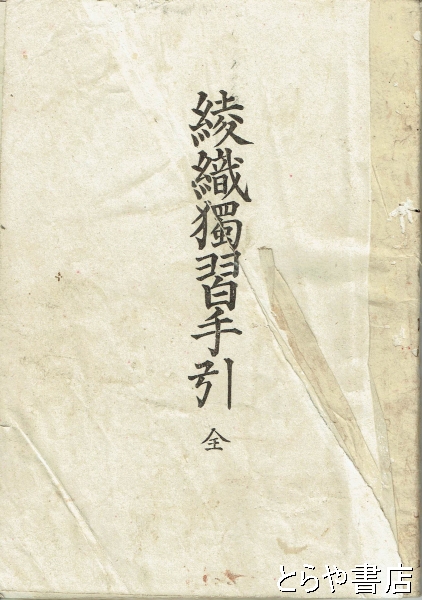 綾織獨習手引
全
とらや書店